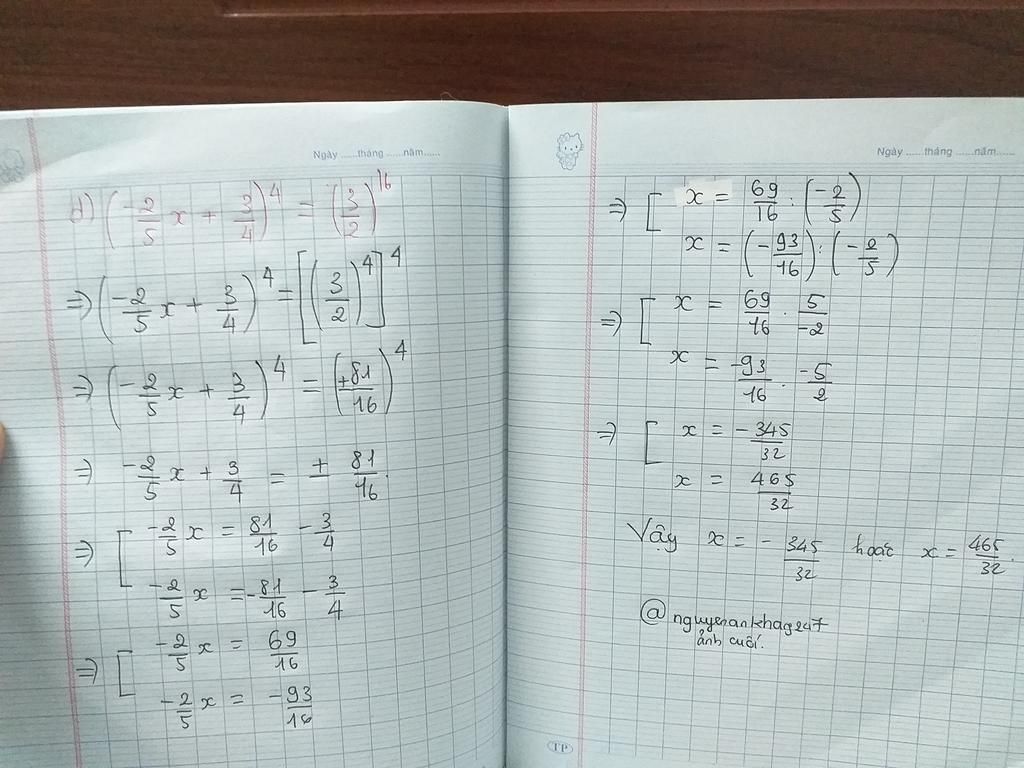 Ngày ......tháng ......năm......
d) (-2/5 x + 3/4)^4 = (3/2)^16
=> (-2/5 x + 3/4)^4 = [(3/2)^4]^4
=> (-2/5 x + 3/4)^4 = (±81/16)^4
=> -2/5 x + 3/4 = ± 81/16.
=> [ -2/5 x = 81/16 - 3/4
-2/5 x = -81/16 - 3/4
=> [ -2/5 x = 69/16
-2/5 x = -93/16
Ngày ......tháng ......năm......
=> [ x = 69/16 : (-2/5)
x = (-93/16) : (-2/5)
=> [ x = 69/16 . 5/-2
x = -93/16 . -5/2
=> [ x = -345/32
x = 465/32
Vậy x = -345/32 hoặc x = 465/32.
@nguyenankhag247
ảnh cuối.
TP